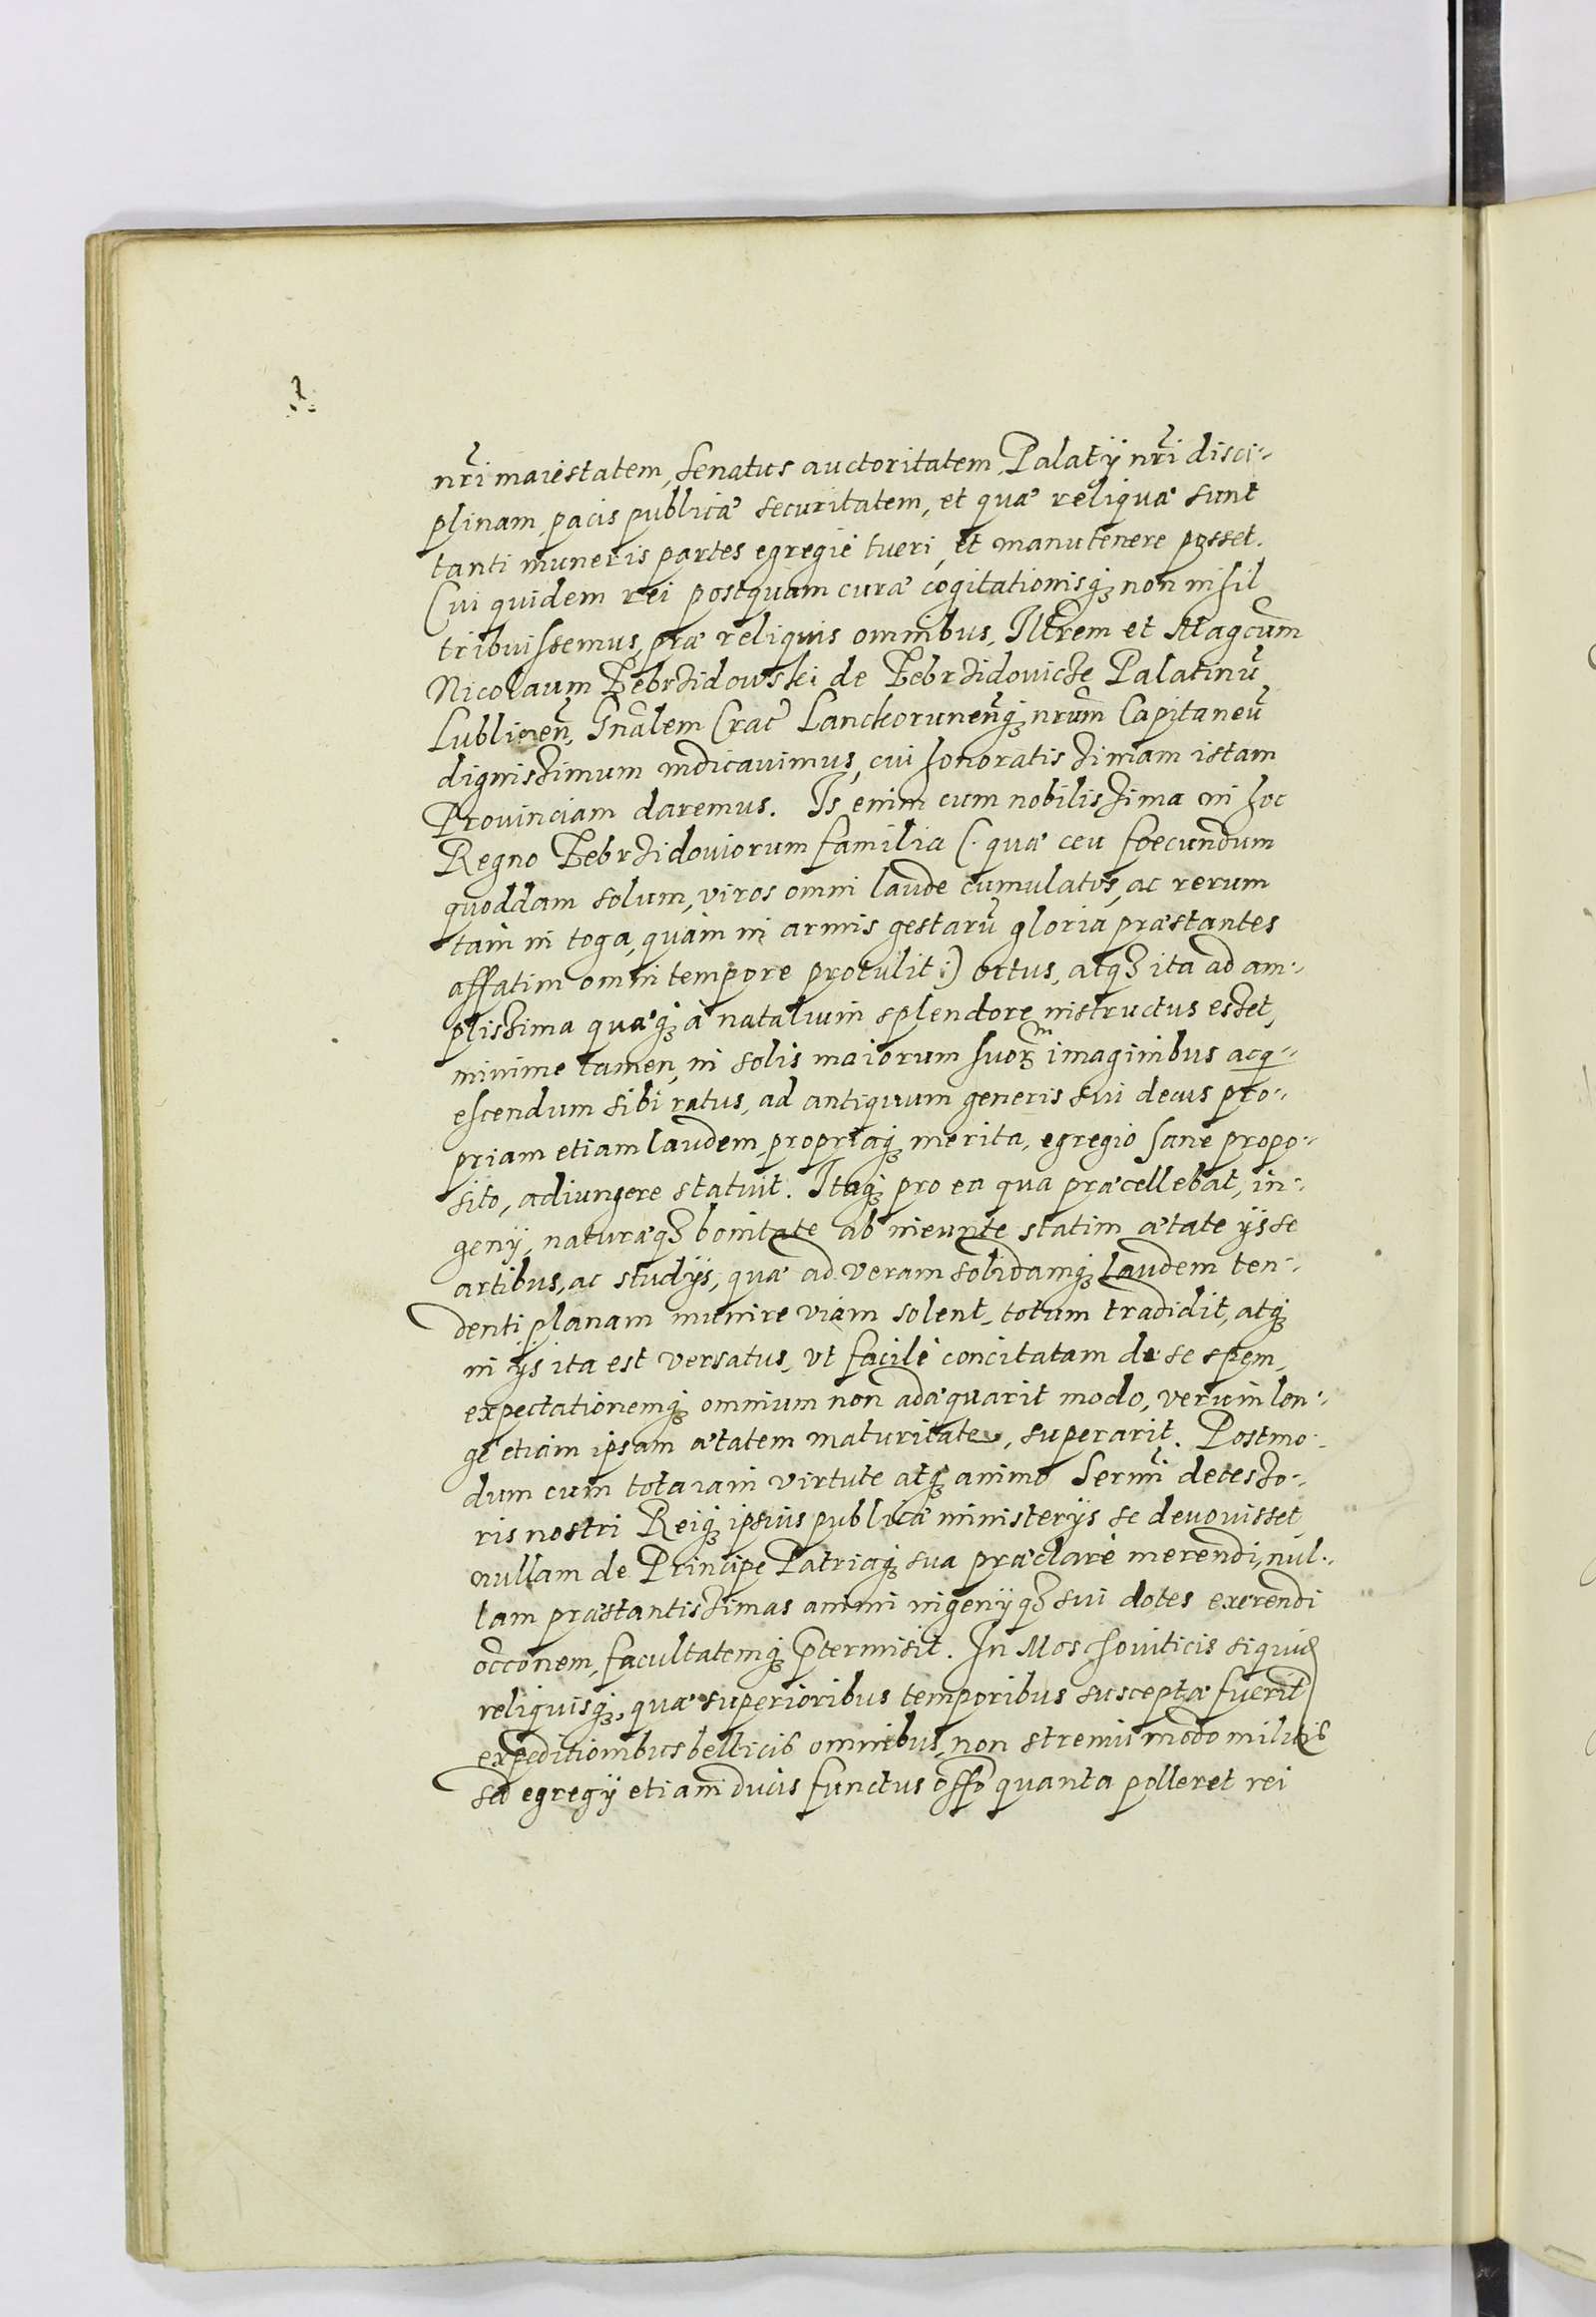 nr̃i maiestatem, Senatus auctoritatem, Palatÿ nr̃i disci-
plinam, pacis publicæ securitatem, et quæ reliquæ sunt
tanti muneris partes egregiè tueri, et manutenere posset.
Cui quidem rei postquam curæ cogitationisq; non nihil
tribuissemus, præ reliquis omnibus, Illrẽm et Magcũm
Nicolaum Zebrzidowski de Zebrzidovicze Palatinũ
Lublineñ, Gnãlem Crac̃ Lanckoruneñq; nrũm Capitaneũ
dignissimum indicavimus, cui honoratissimam istam
Provinciam daremus. Is enim cum nobilissima in hoc
Regno Zebrzidoviorum familia (. quæ ceu foecundum
quoddam solum, viros omni laude cumulatos, ac rerum
tam in toga, quàm in armis gestarũ gloria præstantes
affatim omni tempore protulit :) ortus, atq; ita ad am-
plissima quæq; à natalium splendore instructus esset,
minime tamen, in solis maiorum suorm imaginibus acq-
escendum sibi ratus, ad antiquum generis sui decus pro-
priam etiam laudem, propriaq; merita, egregio sane propo-
sito, adiungere statuit. Itaq; pro ea qua præcellebat, in-
genÿ, naturæq; bonitate ab ineunte statim ætate ÿs se
artibus, ac studÿs, quæ ad veram solidamq; laudem ten-
denti planam munire viam solent, totum tradidit, atq;
in ÿs ita est versatus, vt facilè concitatam de se spem,
expectationemq; omnium non adæquarit modo, verum lon-
gè etiam ipsam ætatem maturitate, superarit. Postmo-
dum cum tota iam virtute atq; animo Sermĩ decesso-
ris nostri Reiq; ipsius publicæ ministerÿs se devovisset,
nullam de Principe Patriaq; sua præclarè merendi, nul-
lam præstantissimas animi ingenÿq; sui dotes exerendi
occõnem, facultatemq; p̃termisit. In Moschoviticis siquid̃
reliquisq;, quæ superioribus temporibus susceptæ fuerũt
expeditionibus bellicis omnibus, non strenui modo militis
sed egregÿ etiam ducis functus offõ quanta polleret rei